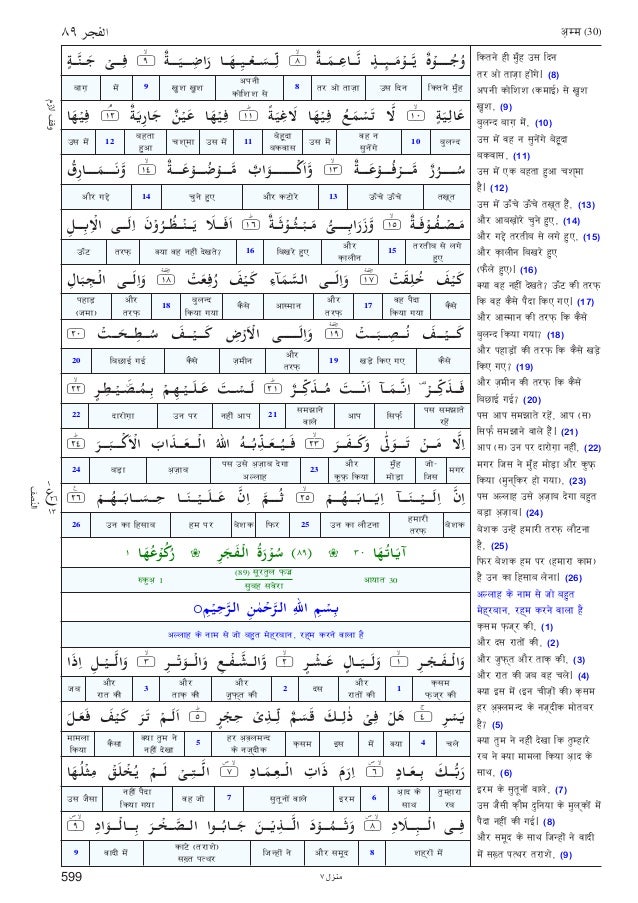 الفجر ٨٩
अ़म्म (30)
وُجُوْهٌ يَّوْمَئِذٍ نَّاعِمَةٌ ۙ ٨ لِّسَعْيِهَا رَاضِيَةٌ ۙ ٩ فِيْ جَنَّةٍ
कितने ही मुँह | उस दिन | तर ओ ताज़ा | 8 | अपनी कोशिश से | खुश खुश | 9 | में | बाग़
عَالِيَةٍ ۙ ١٠ لَّا تَسْمَعُ فِيْهَا لَاغِيَةً ؕ ١١ فِيْهَا عَيْنٌ جَارِيَةٌ ۘ ١٢ فِيْهَا
बुलन्द | 10 | वह न सुनेंगे | उस में | बेहूदा बकवास | 11 | उस में | चश्मा | बहता हुआ | 12 | उस में
سُرُرٌ مَّرْفُوْعَةٌ ۙ ١٣ وَّاَكْوَابٌ مَّوْضُوْعَةٌ ۙ ١٤ وَّنَمَارِقُ
तख़्त | ऊँचे ऊँचे | 13 | और कटोरे | चुने हुए | 14 | और गद्दे
مَصْفُوْفَةٌ ۙ ١٥ وَّزَرَابِيُّ مَبْثُوْثَةٌ ؕ ١٦ اَفَلَا يَنْظُرُوْنَ اِلَى الْاِبِلِ
तरतीब से लगे हुए | 15 | और क़ालीन | बिखरे हुए | 16 | क्या वह नहीं देखते? | तरफ़ | ऊँट
كَيْفَ خُلِقَتْ ١٧ وَاِلَى السَّمَآءِ كَيْفَ رُفِعَتْ ١٨ وَاِلَى الْجِبَالِ
कैसे | वह पैदा किया गया | 17 | और तरफ़ | आस्मान | कैसे | बुलन्द किया गया | 18 | और तरफ़ | पहाड़ (जमा)
كَيْفَ نُصِبَتْ ١٩ وَاِلَى الْاَرْضِ كَيْفَ سُطِحَتْ ٢٠
कैसे | खड़े किए गए | 19 | और तरफ़ | ज़मीन | कैसे | बिछाई गई | 20
فَذَكِّرْ اِنَّمَآ اَنْتَ مُذَكِّرٌ ؕ ٢١ لَسْتَ عَلَيْهِمْ بِمُصَيْطِرٍ ۙ ٢٢
पस समझाते रहें | सिर्फ़ | आप | समझाने वाले | 21 | नहीं आप | उन पर | दारोग़ा | 22
اِلَّا مَنْ تَوَلّٰى وَكَفَرَ ۙ ٢٣ فَيُعَذِّبُهُ اللّٰهُ الْعَذَابَ الْاَكْبَرَ ؕ ٢٤
मगर | जो-जिस | मुँह मोड़ा | और कुफ़्र किया | 23 | पस उसे अ़ज़ाब देगा अल्लाह | अ़ज़ाब | बड़ा | 24
اِنَّ اِلَيْنَآ اِيَابَهُمْ ۙ ٢٥ ثُمَّ اِنَّ عَلَيْنَا حِسَابَهُمْ ٢٦
बेशक | हमारी तरफ़ | उन का लौटना | 25 | फिर | बेशक | हम पर | उन का हिसाब | 26
اٰيَاتُهَا ٣٠ (٨٩) سُوْرَةُ الْفَجْرِ رُكُوْعُهَا ١
आयात 30 | (89) सूरतुल फ़ज्र सुबह सवेरा | रुकुअ़ 1
بِسْمِ اللّٰهِ الرَّحْمٰنِ الرَّحِيْمِ
अल्लाह के नाम से जो बहुत मेह्रबान, रह्म करने वाला है
وَالْفَجْرِ ۙ ١ وَلَيَالٍ عَشْرٍ ۙ ٢ وَّالشَّفْعِ وَالْوَتْرِ ۙ ٣ وَالَّيْلِ اِذَا
क़सम फ़ज्र की | 1 | और रातों की | दस | 2 | और जुफ़्त की | और ताक़ की | 3 | और रात की | जब
يَسْرِ ۚ ٤ هَلْ فِيْ ذٰلِكَ قَسَمٌ لِّذِيْ حِجْرٍ ؕ ٥ اَلَمْ تَرَ كَيْفَ فَعَلَ
चले | 4 | क्या | में | इस | क़सम | हर अ़क़्लमन्द के नज़्दीक | 5 | क्या तुम ने नहीं देखा | कैसा | मामला किया
رَبُّكَ بِعَادٍ ٦ اِرَمَ ذَاتِ الْعِمَادِ ٧ الَّتِيْ لَمْ يُخْلَقْ مِثْلُهَا
तुम्हारा रब | आ़द के साथ | 6 | इरम | सुतूनों वाले | 7 | वह जो | नहीं पैदा किया गया | उस जैसा
فِي الْبِلَادِ ٨ وَثَمُوْدَ الَّذِيْنَ جَابُوا الصَّخْرَ بِالْوَادِ ٩
शहरों में | 8 | और समूद | जिन्हों ने | काटे (तराशे) सख़्त पत्थर | वादी में | 9
कितने ही मुँह उस दिन
तर ओ ताज़ा होंगे। (8)
अपनी कोशिश (कमाई) से खुश
खुश, (9)
बुलन्द बाग़ में, (10)
उस में वह न सुनेंगे बेहूदा
बकवास, (11)
उस में एक बहता हुआ चश्मा
है। (12)
उस में ऊँचे ऊँचे तख़्त हैं, (13)
और आबख़ोरे चुने हुए, (14)
और गद्दे तरतीब से लगे हुए, (15)
और क़ालीन बिखरे हुए
(फैले हुए)। (16)
क्या वह नहीं देखते? ऊँट की तरफ़
कि वह कैसे पैदा किए गए। (17)
और आस्मान की तरफ़ कि कैसे
बुलन्द किया गया? (18)
और पहाड़ों की तरफ़ कि कैसे खड़े
किए गए? (19)
और ज़मीन की तरफ़ कि कैसे
बिछाई गई? (20)
पस आप समझाते रहें, आप (स)
सिर्फ़ समझाने वाले हैं। (21)
आप (स) उन पर दारोग़ा नहीं, (22)
मगर जिस ने मुँह मोड़ा और कुफ़्र
किया (मुन्किर हो गया), (23)
पस अल्लाह उसे अ़ज़ाब देगा बहुत
बड़ा अ़ज़ाब। (24)
बेशक उन्हें हमारी तरफ़ लौटना
है, (25)
फिर बेशक हम पर (हमारा काम)
है उन का हिसाब लेना। (26)
अल्लाह के नाम से जो बहुत
मेह्रबान, रह्म करने वाला है
क़सम फ़ज्र की, (1)
और दस रातों की, (2)
और जुफ़्त और ताक़ की, (3)
और रात की जब वह चले। (4)
क्या इस में (इन चीज़ों की) क़सम
हर अ़क़्लमन्द के नज़्दीक मोतबर
है? (5)
क्या तुम ने नहीं देखा कि तुम्हारे
रब ने क्या मामला किया आ़द के
साथ, (6)
इरम के सुतूनों वाले, (7)
उस जैसी क़ौम दुनिया के मुल्कों में
पैदा नहीं की गई। (8)
और समूद के साथ जिन्हों ने वादी
में सख़्त पत्थर तराशे, (9)
وقف لازم
النصف
١٣
599
منزل ٧